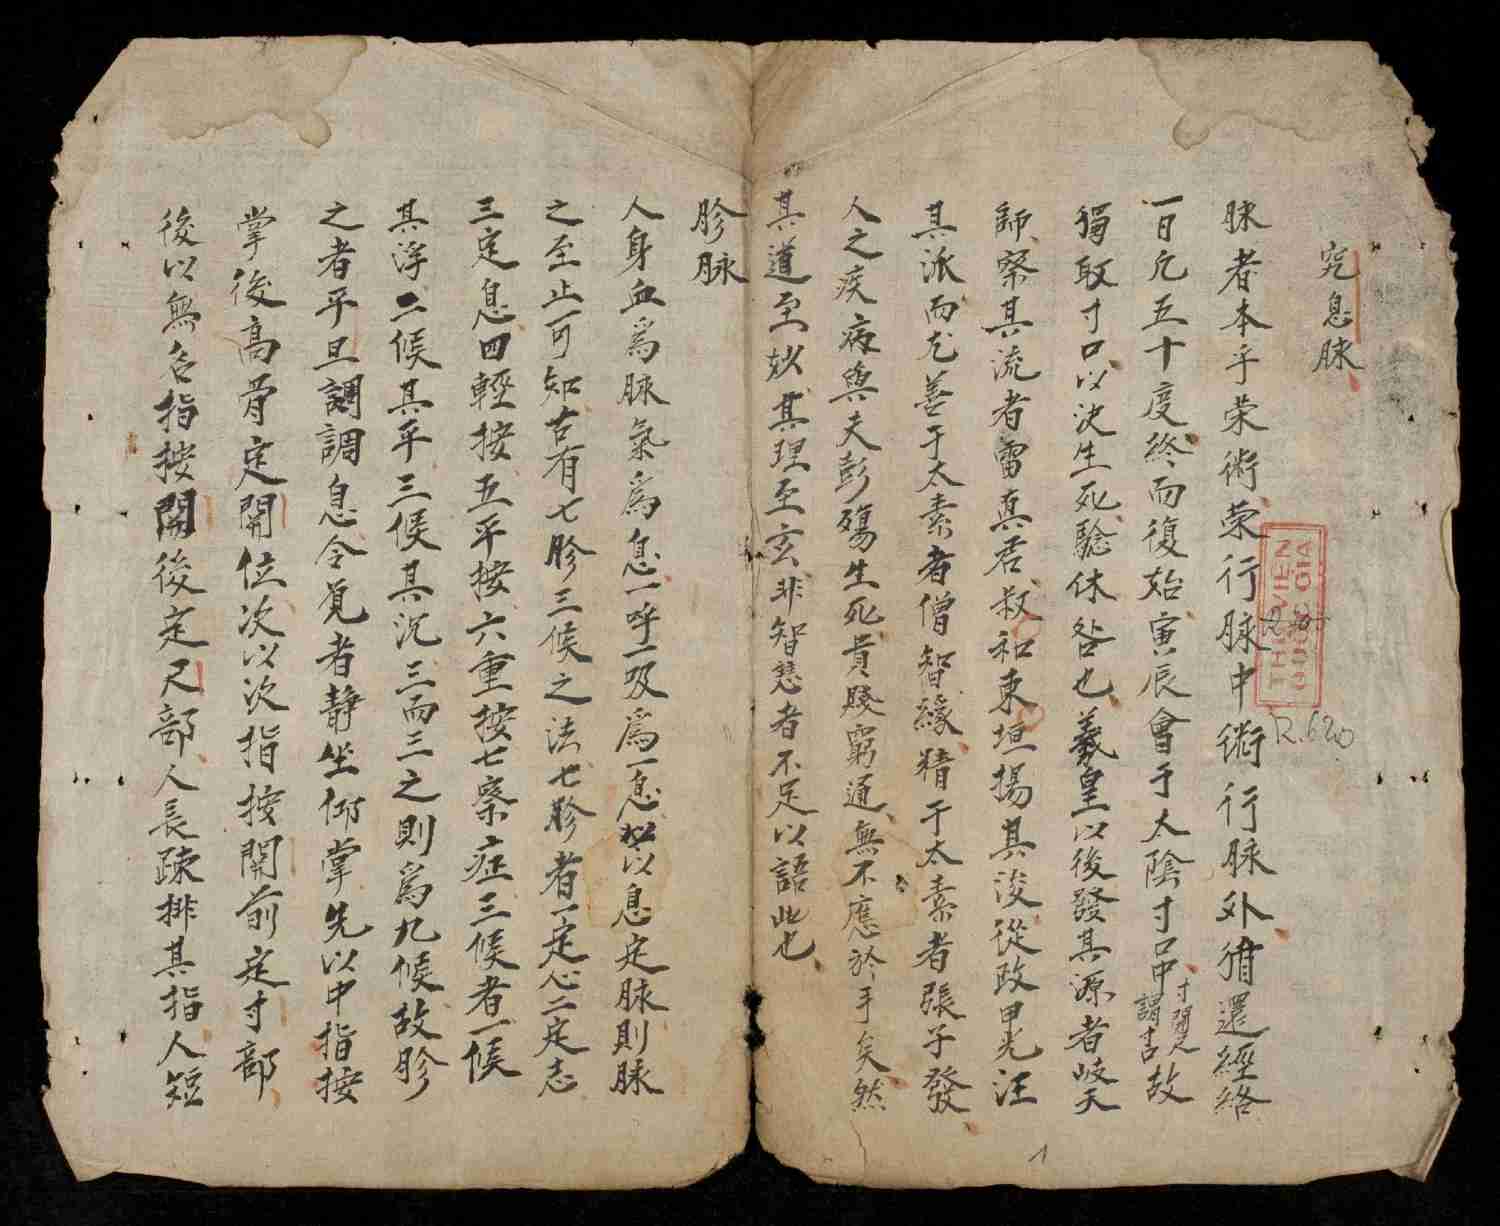 究息脉
脉者本乎荣術荣行脉中術行脉外循還經絡
一日凡五十度終而復始寅辰會于太陰寸口中寸関尺謂寸口故
獨取寸口以决生死驗休咎也羲皇以後發其源者岐天
師察其流者雷真君叔和東垣揚其後從政甲光汪
其派而尤善于太素者僧智緣精于太素者張子發
人之疾病與夫彭殤生死貴賤窮通無不應於手矣然
其道至妙其理至玄非智慧者不足以語此也
胗脉
人身血爲脉氣爲息一呼一吸爲一息以息定脉則脉
之至止可知古有七胗三候之法七胗者一定心二定志
三定息四輕按五平按六重按七察症三候者一候
其浮二候其平三候其沉三而三之則爲九候故胗
之者平旦調調息令覓者静坐仰掌先以中指按
掌後高骨定関位次以次指按関前定寸部
後以無名指按関後定尺部人長疎排其指人短
THƯ VIỆN
QUỐC GIA
R.620
1